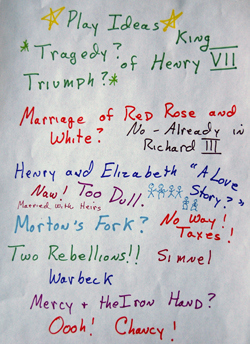 Play Ideas
*Tragedy? of King Henry VII
Triumph?*
Marriage of Red Rose and
White? No - Already in
Richard III
Henry and Elizabeth "A Love
Story?"
Naw! Too Dull.
Married with Heirs
Morton's Fork? No Way!
Taxes!
Two Rebellions!! Simnel
Warbeck
Mercy + the Iron Hand?
Oooh! Chancy!